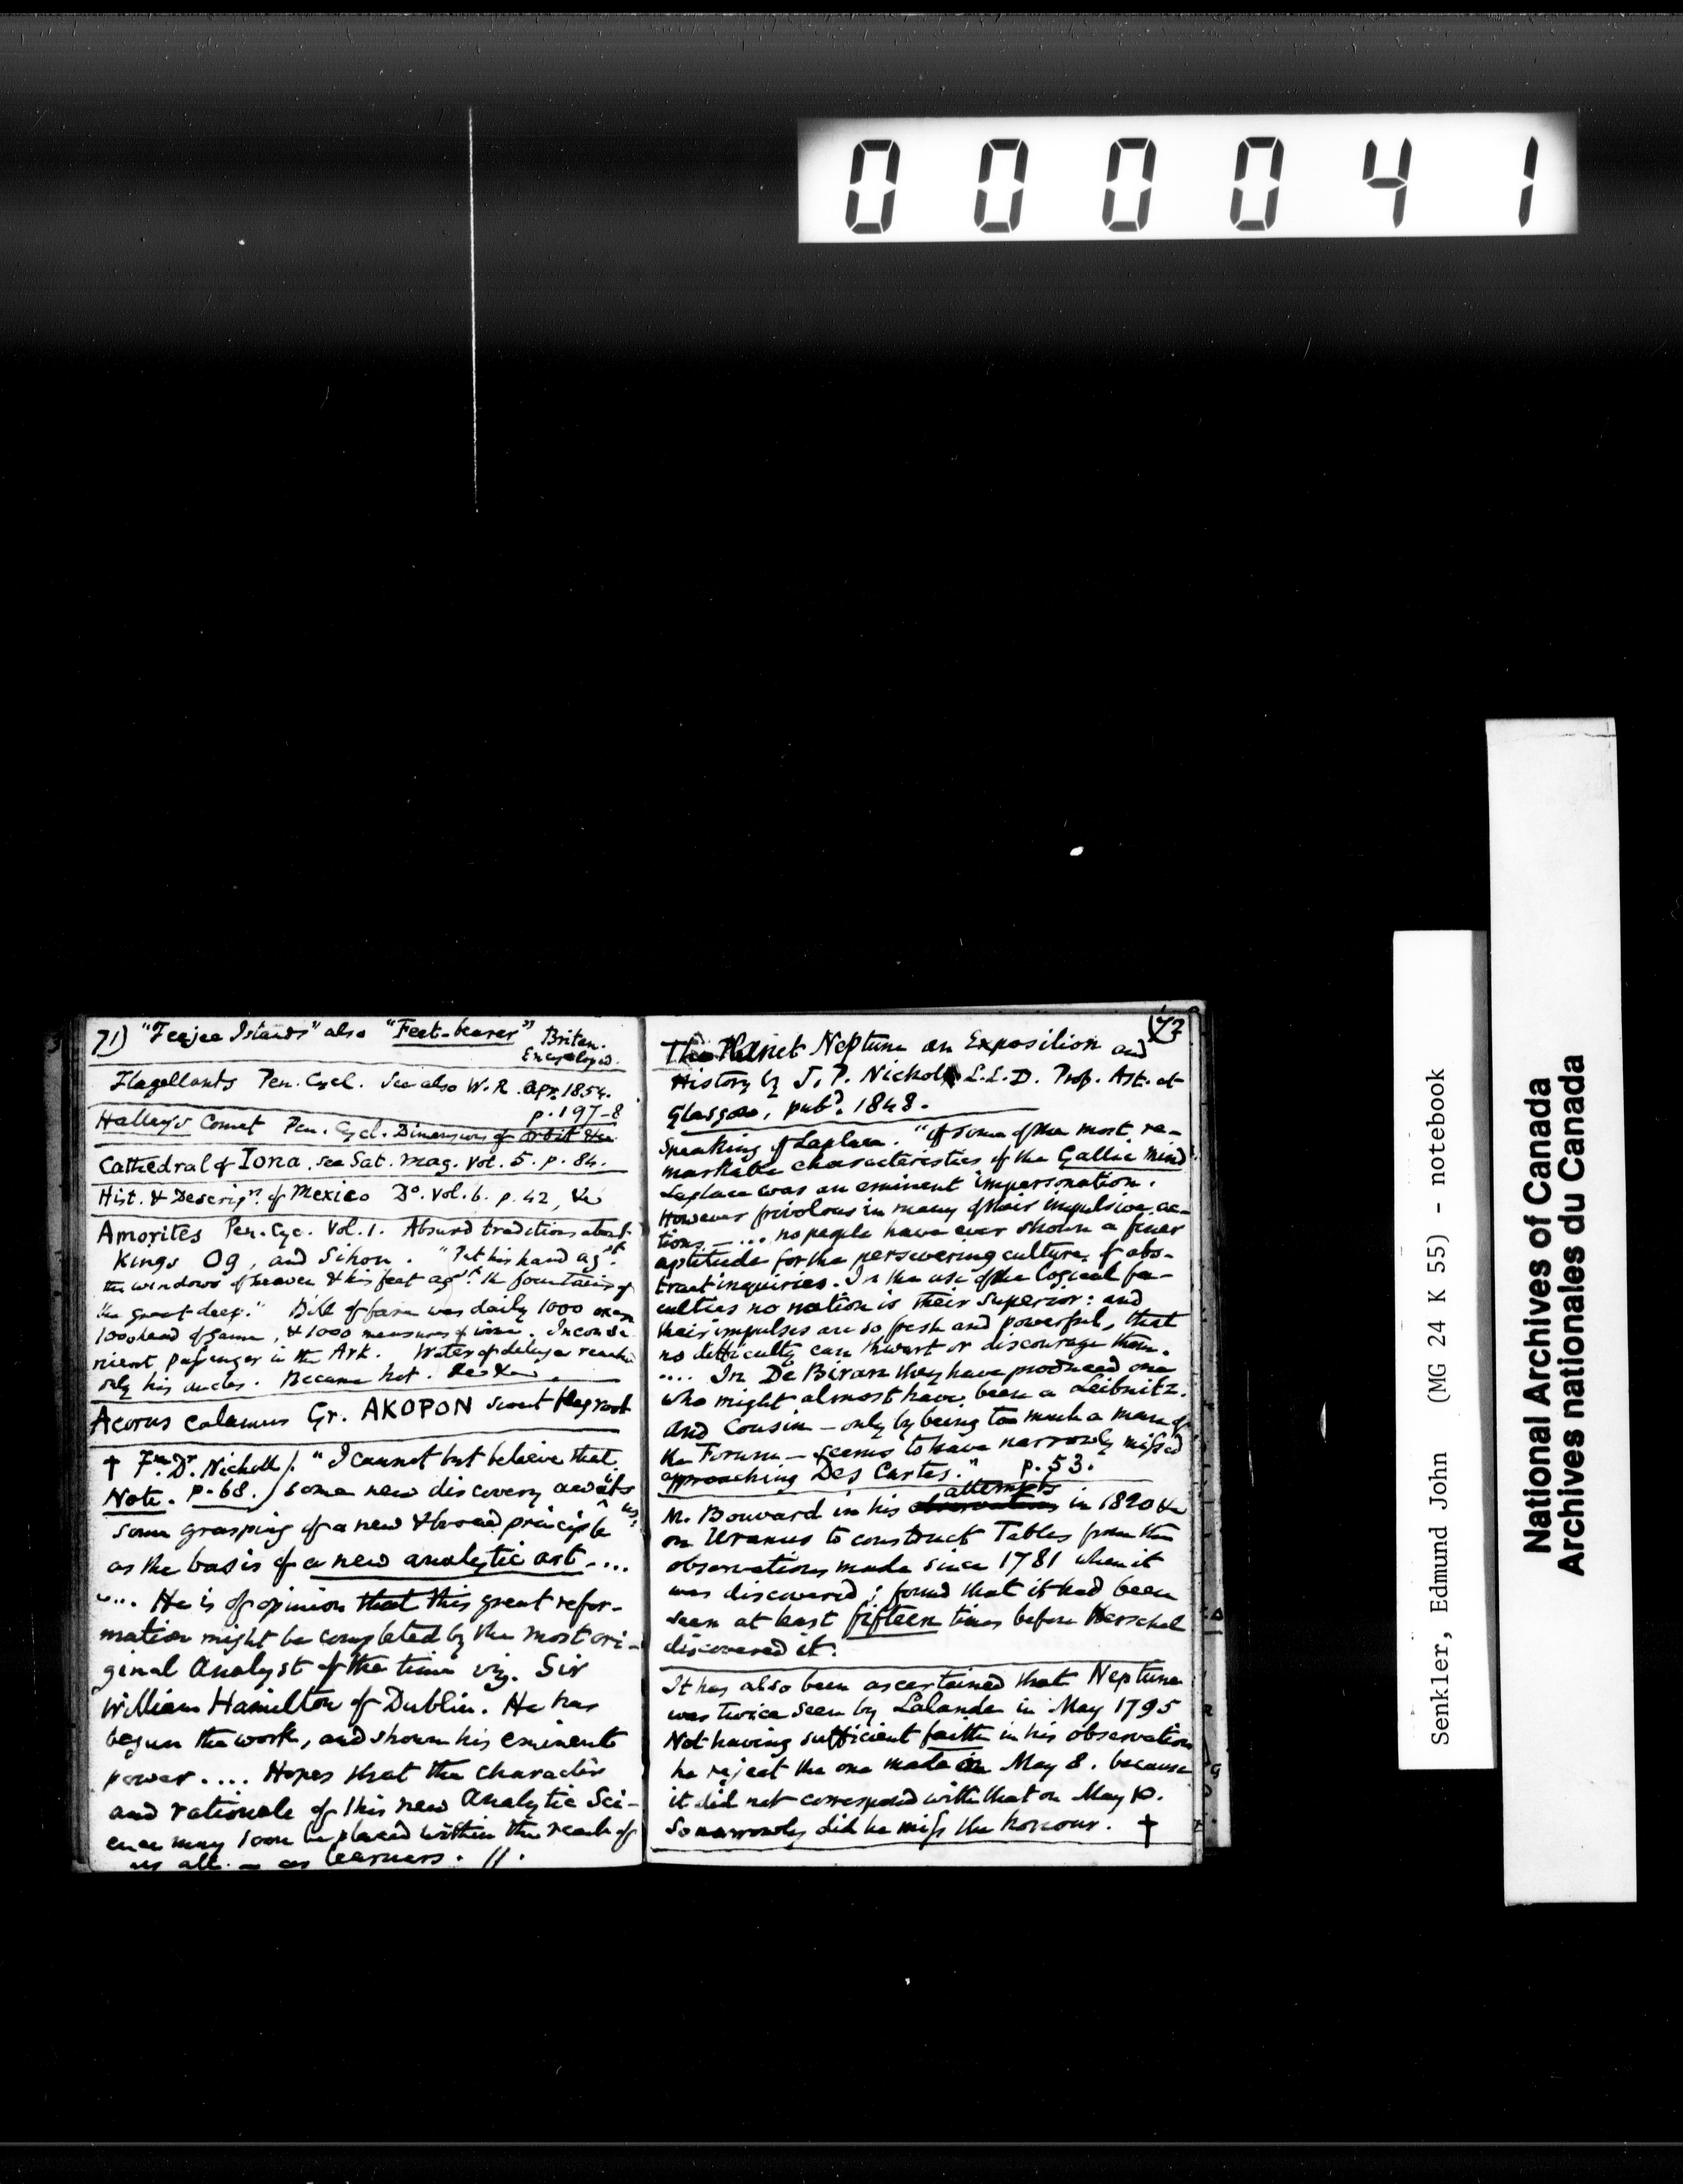 000041
71) "Feejee Islands" also "Feet-bearer" Britan.
Encyclopad.
Flagellants Pen. Cycl. See also W.R. Apr. 1854.
p. 197-8
Halley's Comet Pen. Cycl. Dimensions of orbit &c.
Cathedral of Iona, see Sat. Mag. Vol. 5. p. 84.
Hist. & Descrip.n of Mexico Do. Vol. 6. p. 42, &c
Amorites Pen. Cyc. Vol. 1. Absurd traditions about
Kings Og, and Sihon. "Put his hand agst.
the windows of heaven & his feet agst. the fountains of
the great deep." Bill of fare was daily 1000 oxen
1000 head of game, & 1000 measures of wine. Inconve
nient passenger in the Ark. Water of deluge reached
only his ancles. Became hot. &c &c
Acorus calamus Gr. AKOPON sweet flag root
† Fm. Dr. Nicholl). "I cannot but believe that
Note. p. 68.) some new discovery awaits us,
some grasping of a new & broad principle
as the basis of a new analytic art....
"... He is of opinion that this great refor-
mation might be completed by the most ori-
ginal Analyst of the time viz. Sir
William Hamilton of Dublin. He has
begun the work, and shown his eminent
power.... Hopes that the character
and rationale of this new Analytic Sci-
ence may soon be placed within the reach of
us all - as learners. //.
(72
The Planet Neptune an Exposition and
History by J. P. Nichol L.L.D. Prof. Ast. at
Glasgow, pubd. 1848.
Speaking of Laplace. "Of some of the most re-
markable characteristics of the Gallic mind
Laplace was an eminent impersonation.
However frivolous in many of their impulsive ac-
tions - ... no people have ever shown a finer
aptitude for the persevering culture of abs-
tract inquiries. In the use of the logical fa-
culties no nation is their superior: and
their impulses are so fresh and powerful, that
no difficulty can thwart or discourage them.
.... In De Biran they have produced one
who might almost have been a Leibnitz.
and Cousin - only by being too much a man of
the Forum - seems to have narrowly missed
approaching Des Cartes." p. 53.
attempts
M. Bouvard in his observations in 1820 &c
on Uranus to construct Tables from the
observations made since 1781 when it
was discovered; found that it had been
seen at least fifteen times before Herschel
discovered it.
It has also been ascertained that Neptune
was twice seen by Lalande in May 1795
Not having sufficient faith in his observation
he reject the one made on May 8. because
it did not correspond with that on May 10.
So narrowly did he miss the honour. †
Senkler, Edmund John (MG 24 K 55) - notebook
National Archives of Canada
Archives nationales du Canada